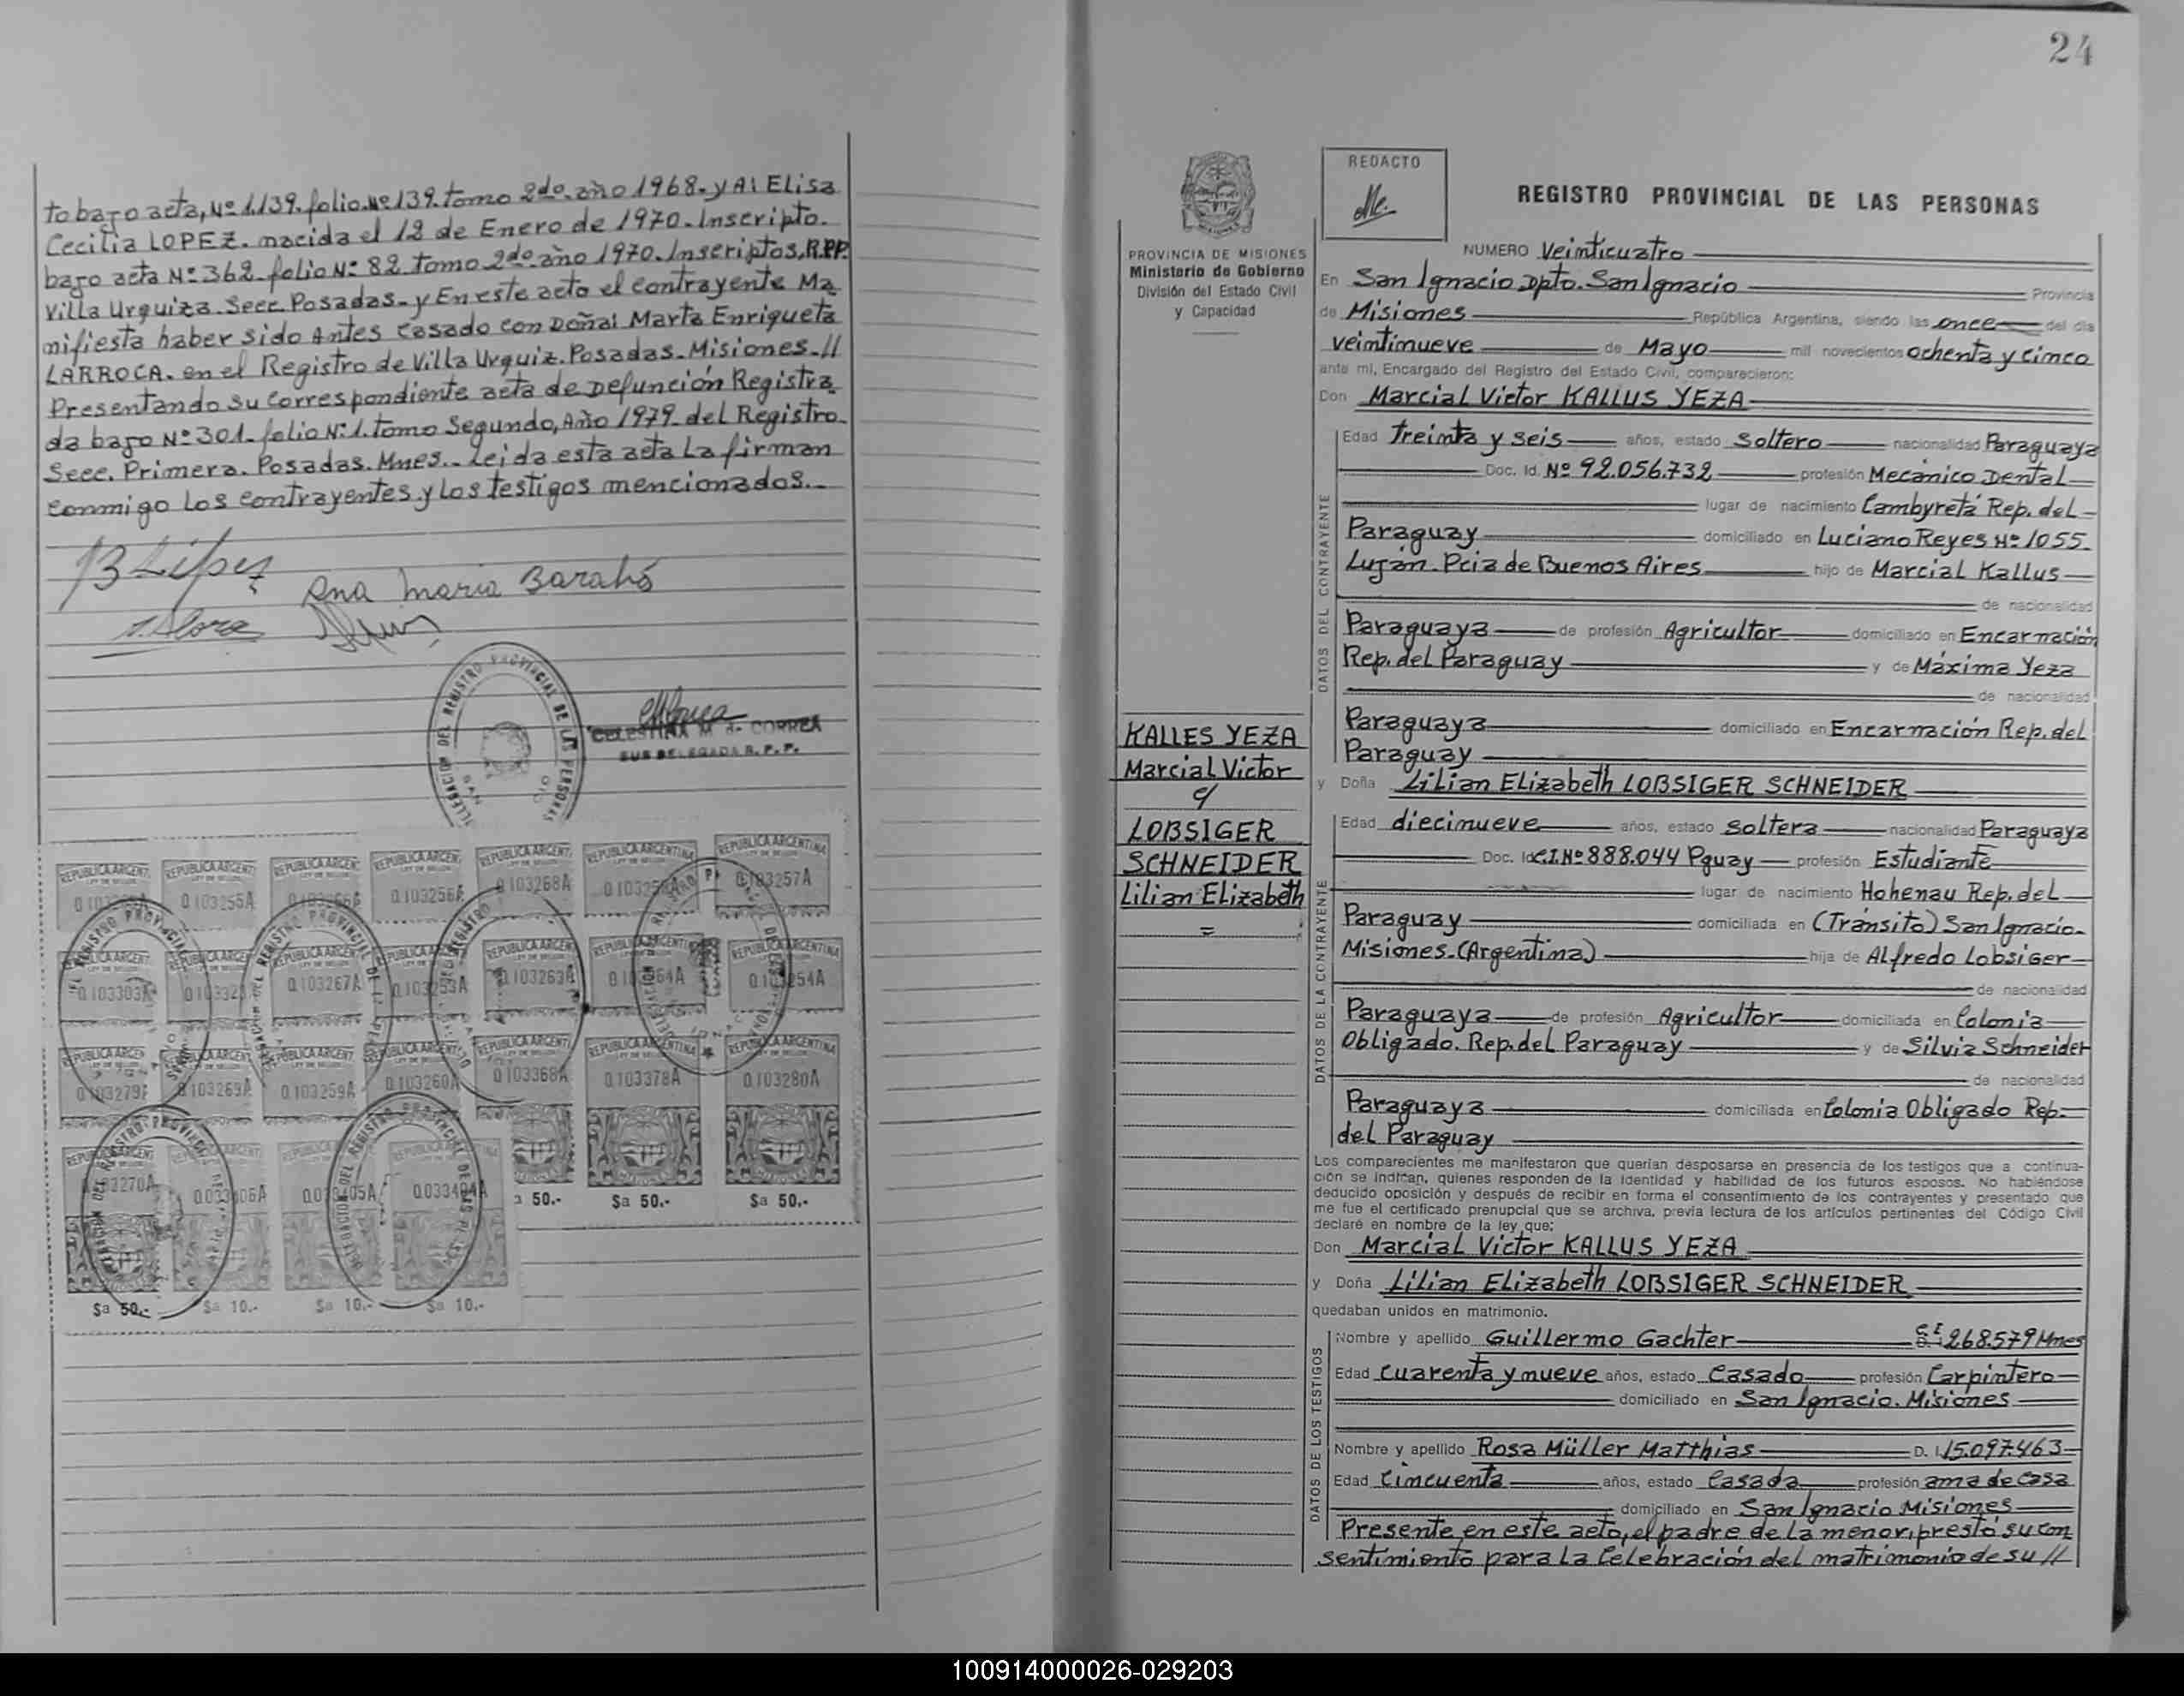 to bajo acta, Nº 1.139. folio. Nº 139. tomo 2do. año 1968. y A: Elisa
Cecilia LOPEZ. nacida el 12 de Enero de 1970. Inscripto.
bajo acta Nº 362. folio Nº 82 tomo 2do año 1970. Inscriptos, R.PP.
Villa Urquiza. Secc. Posadas. y En este acto el contrayente Ma
nifiesta haber sido Antes casado con Doña: Marta Enriqueta
LARROCA. en el Registro de Villa Urquiz. Posadas. Misiones. //
Presentando su correspondiente acta de Defunción Registra
da bajo Nº 301. folio Nº 1. tomo Segundo, Año 1979. del Registro
Secc. Primera. Posadas. Mnes.. Leida esta acta La firman
conmigo los contrayentes y los testigos mencionados..
Ana Maria Barahó
DELEGACION DEL REGISTRO PROVINCIAL DE LAS PERSONAS
SAN
CIO
CELESTINA M. de CORREA
SUB DELEGADA R. P. P.
REPUBLICA ARGENTINA
0.103255A
0.103256A
0.103268A
0.103257A
0.103303A
0.103267A
0.103253A
0.103263A
0.103269A
0.103259A
0.103260A
0.103368A
0.103378A
0.103280A
0.033404A
$a 50.-
$a 50.-
$a 50.-
$a 10.-
$a 10.-
$a 10.-
24
PROVINCIA DE MISIONES
Ministerio de Gobierno
División del Estado Civil
y Capacidad
KALLES YEZA
Marcial Victor
c/
LOBSIGER
SCHNEIDER
Lilian Elizabeth
=
REDACTO
REGISTRO PROVINCIAL DE LAS PERSONAS
NUMERO Veinticuatro
En San Ignacio Dpto. San Ignacio Provincia
de Misiones República Argentina, siendo las once del día
veintinueve de Mayo mil novecientos ochenta y cinco
ante mí, Encargado del Registro del Estado Civil, comparecieron:
Don Marcial Victor KALLUS YEZA
DATOS DEL CONTRAYENTE
Edad Treinta y seis años, estado soltero nacionalidad Paraguaya
Doc. Id. Nº 92.056.732 profesión Mecánico Dental
lugar de nacimiento Cambyretá Rep. del
Paraguay domiciliado en Luciano Reyes Nº 1055.
Luján. Pcia de Buenos Aires hijo de Marcial Kallus
de nacionalidad
Paraguaya de profesión Agricultor domiciliado en Encarnación
Rep. del Paraguay y de Máxima Yeza
de nacionalidad
Paraguaya domiciliado en Encarnación Rep. del
Paraguay
y Doña Lilian Elizabeth LOBSIGER SCHNEIDER
DATOS DE LA CONTRAYENTE
Edad diecinueve años, estado soltera nacionalidad Paraguaya
Doc. Id C.I. Nº 888.044 Pguay profesión Estudiante
lugar de nacimiento Hohenau Rep. del
Paraguay domiciliada en (Tránsito) San Ignacio.
Misiones. (Argentina) hija de Alfredo Lobsiger
de nacionalidad
Paraguaya de profesión Agricultor domiciliada en Colonia
Obligado. Rep. del Paraguay y de Silvia Schneider
de nacionalidad
Paraguaya domiciliada en Colonia Obligado Rep.
del Paraguay
Los comparecientes me manifestaron que querían desposarse en presencia de los testigos que a continua-
ción se indican, quienes responden de la identidad y habilidad de los futuros esposos. No habiéndose
deducido oposición y después de recibir en forma el consentimiento de los contrayentes y presentado que
me fue el certificado prenupcial que se archiva, previa lectura de los artículos pertinentes del Código Civil
declaré en nombre de la ley que:
Don Marcial Victor KALLUS YEZA
y Doña Lilian Elizabeth LOBSIGER SCHNEIDER
quedaban unidos en matrimonio.
DATOS DE LOS TESTIGOS
Nombre y apellido Guillermo Gachter C.I 268.579 Mnes
Edad cuarenta y nueve años, estado Casado profesión Carpintero
domiciliado en San Ignacio. Misiones
Nombre y apellido Rosa Müller Matthias D. I. 15.097.463
Edad Cincuenta años, estado Casada profesión ama de casa
domiciliado en San Ignacio Misiones
Presente en este acto, el padre de la menor, prestó su con
sentimiento para La Celebración del matrimonio de su //
100914000026-029203